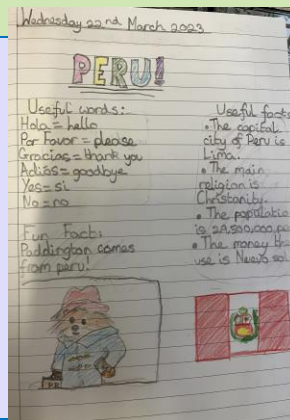 Wednesday 22nd March 2023
PERU!
Useful words:
Hola = hello
Por Favor = please
Gracias = thank you
Adiós = goodbye
Yes = si
No = no
Fun Fact:
Paddington comes
from peru!
Useful facts
• The capital
city of Peru is
Lima.
• The main
religion is
Christianity.
• The populatio
is 29,500,000 pe
• The money th
use is Nuevo sol